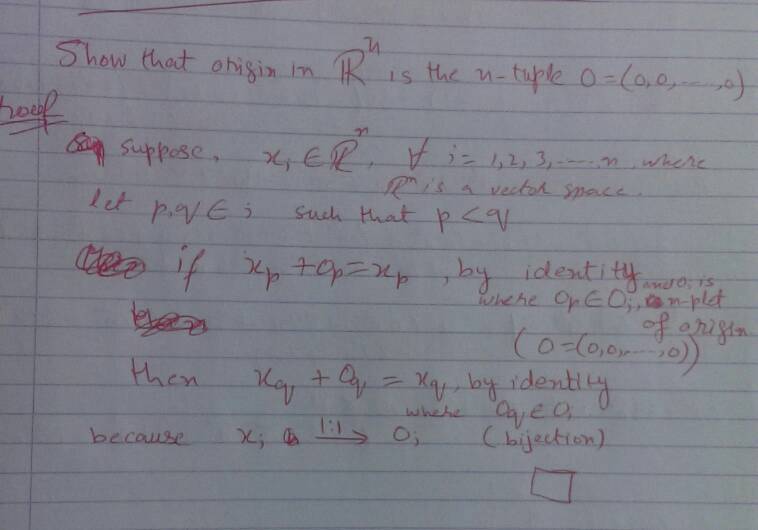 Show that origin in ℝⁿ is the n-tuple 0=(0,0,...,0)
Proof
suppose, xᵢ ∈ ℝⁿ, ∀ i = 1,2,3,....n, where
ℝⁿ is a vector space.
let p,q ∈ i such that p < q
if xₚ + 0ₚ = xₚ, by identity
where 0ₚ ∈ 0ᵢ, and 0ᵢ is n-plet
of origin
(0=(0,0,...,0))
then x_q + 0_q = x_q, by identity
where 0_q ∈ 0ᵢ
because xᵢ 1:1→ 0ᵢ (bijection)